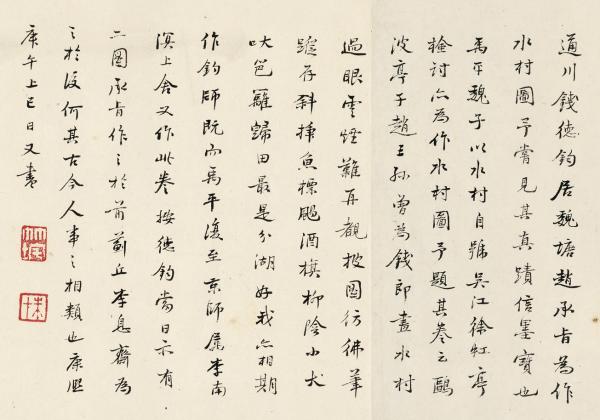 通川錢德鈞居魏塘趙承旨為作
水村圖予嘗見其真蹟信墨寶也
禹平魏子以水村自號吳江徐虹亭
檢討亦為作水村圖予題其卷云鷗
波亭子趙王孫曾為錢郎畫水村
過眼雲煙難再覩披圖彷彿筆
蹤存斜插魚標颺酒旗柳陰小犬
吠笆籬歸田最是分湖好我亦相期
作釣師既而禹平復至京師屬李南
溟上舍又作此卷按德鈞當日亦有
二圖承旨作之於前薊丘李息齋為
之於後何其古今人事之相類也康熙
庚午上巳日又書
竹垞
朱十